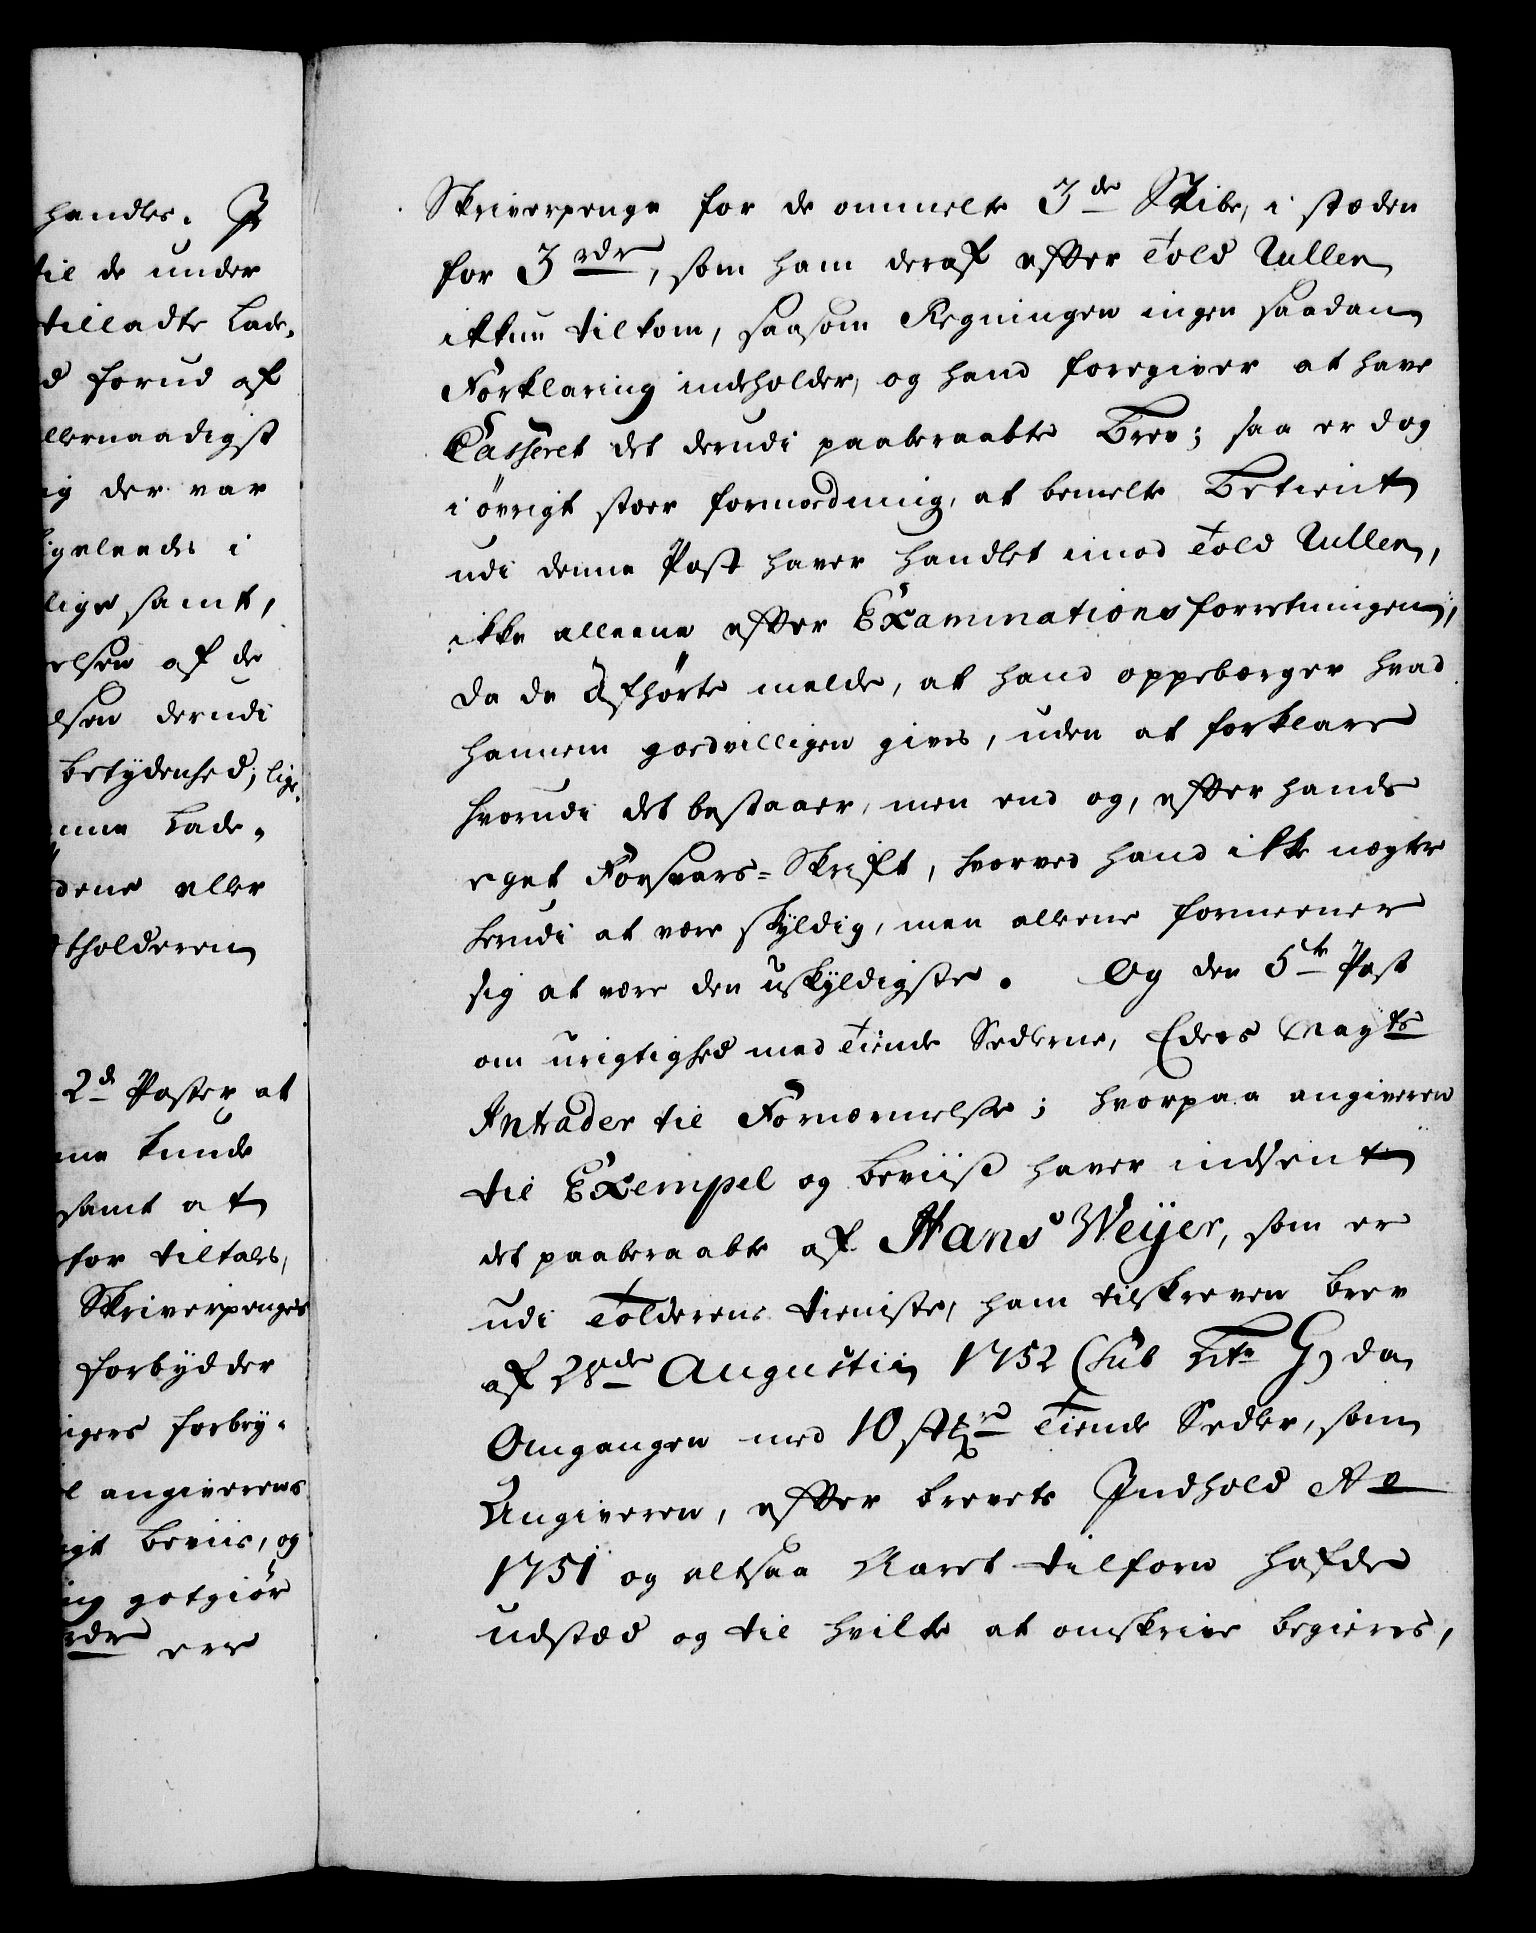 handles. I
til de under
tilladte Lade-
d forud af
llernaadigst
ig der var
igeleedes i
lige samt,
elsen af de
lsen derudi
betydenhed; lige-
mme Lade-
dene eller
tholderen
2de Poster at
me kunde
samt at
for tiltales,
Skriverpenges
forbydder
igers forbry-
l angiverens
igt beviis, og
ing gotgiör
rdr ere
Skriverpenge for de ommelte 3de Skibe, i stæden
for 3 rdr, som ham deraf efter Told Rullen
ikkun tilkom, saasom Regningen ingen saadan
Forklaring indeholder, og hand foregiver at have
Casseret det derudi paaberaabte Brev; saa er dog
i övrigt stoer formodning, at bemelte Betient
udi denne Post haver handlet imod Told Rullen,
ikke alleene efter Examinations forretningen,
da de Afhörte melde, at hand oppebærger hvad
hannem goedvilligen gives, uden at forklare
hvorudi det bestaaer, men end og, efter hands
eget Forsvars-Skrift, hvorved hand ikke nægter
herudi at være skyldig, men alleene formeener
sig at være den uskyldigste. Og den 5te Post
om urigtighed med Tiende Sedlerne, Eders Mayts
Intrader til Fornærmelse; hvorpaa angiveren
til Exempel og beviiß haver indsendt
det paaberaabte af Hans Weyer, som er
udi Tolderens tieniste, ham tilskreven brev
af 28de Augustii 1752 (sub Litr G) da
Omgangen med 10 stkr Tiende Sedler, som
Angiveren, efter brevets Indhold Ao
1751 og altsaa Aaret tilforn hafde
udstæd og til hvilke at omskrive begieres,